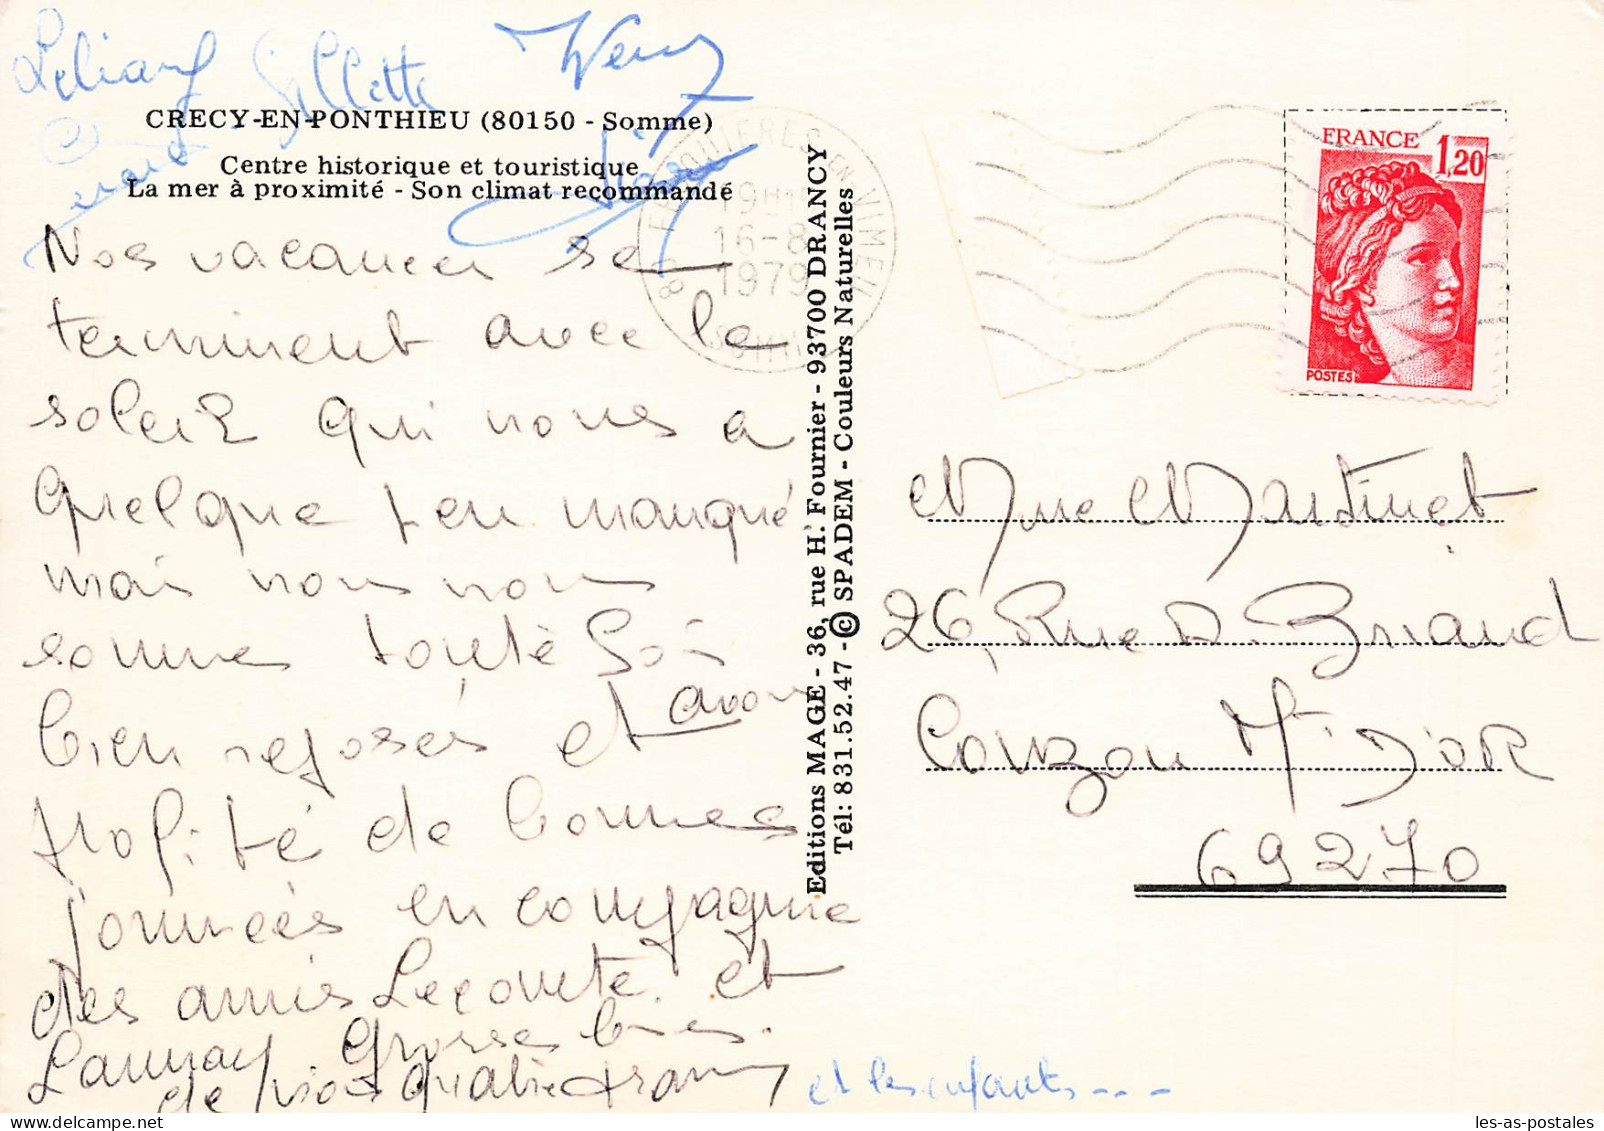 Liliane Gillette
CRECY-EN-PONTHIEU (80150 - Somme)
Centre historique et touristique
La mer à proximité - Son climat recommandé
Nos vacances se
terminent avec le
soleil qui nous a
quelque peu manqué
mais nous nous
sommes toutefois
bien reposés et avons
profité de bonnes
journées en compagnie
des amis Leconte et
Launay Grosses bises.
de vos quatre
et les enfants...
Editions MAGE - 36, rue H. Fournier - 93700 DRANCY
Tél: 831.52.47 - © SPADEM - Couleurs Naturelles
EN VIMEU
19H
16-8
1979
80
SOMME
FRANCE
1,20
POSTES
Mme Martinet
26, Rue A. Briand
Couzon Mt D'OR
69270
les-as-postales